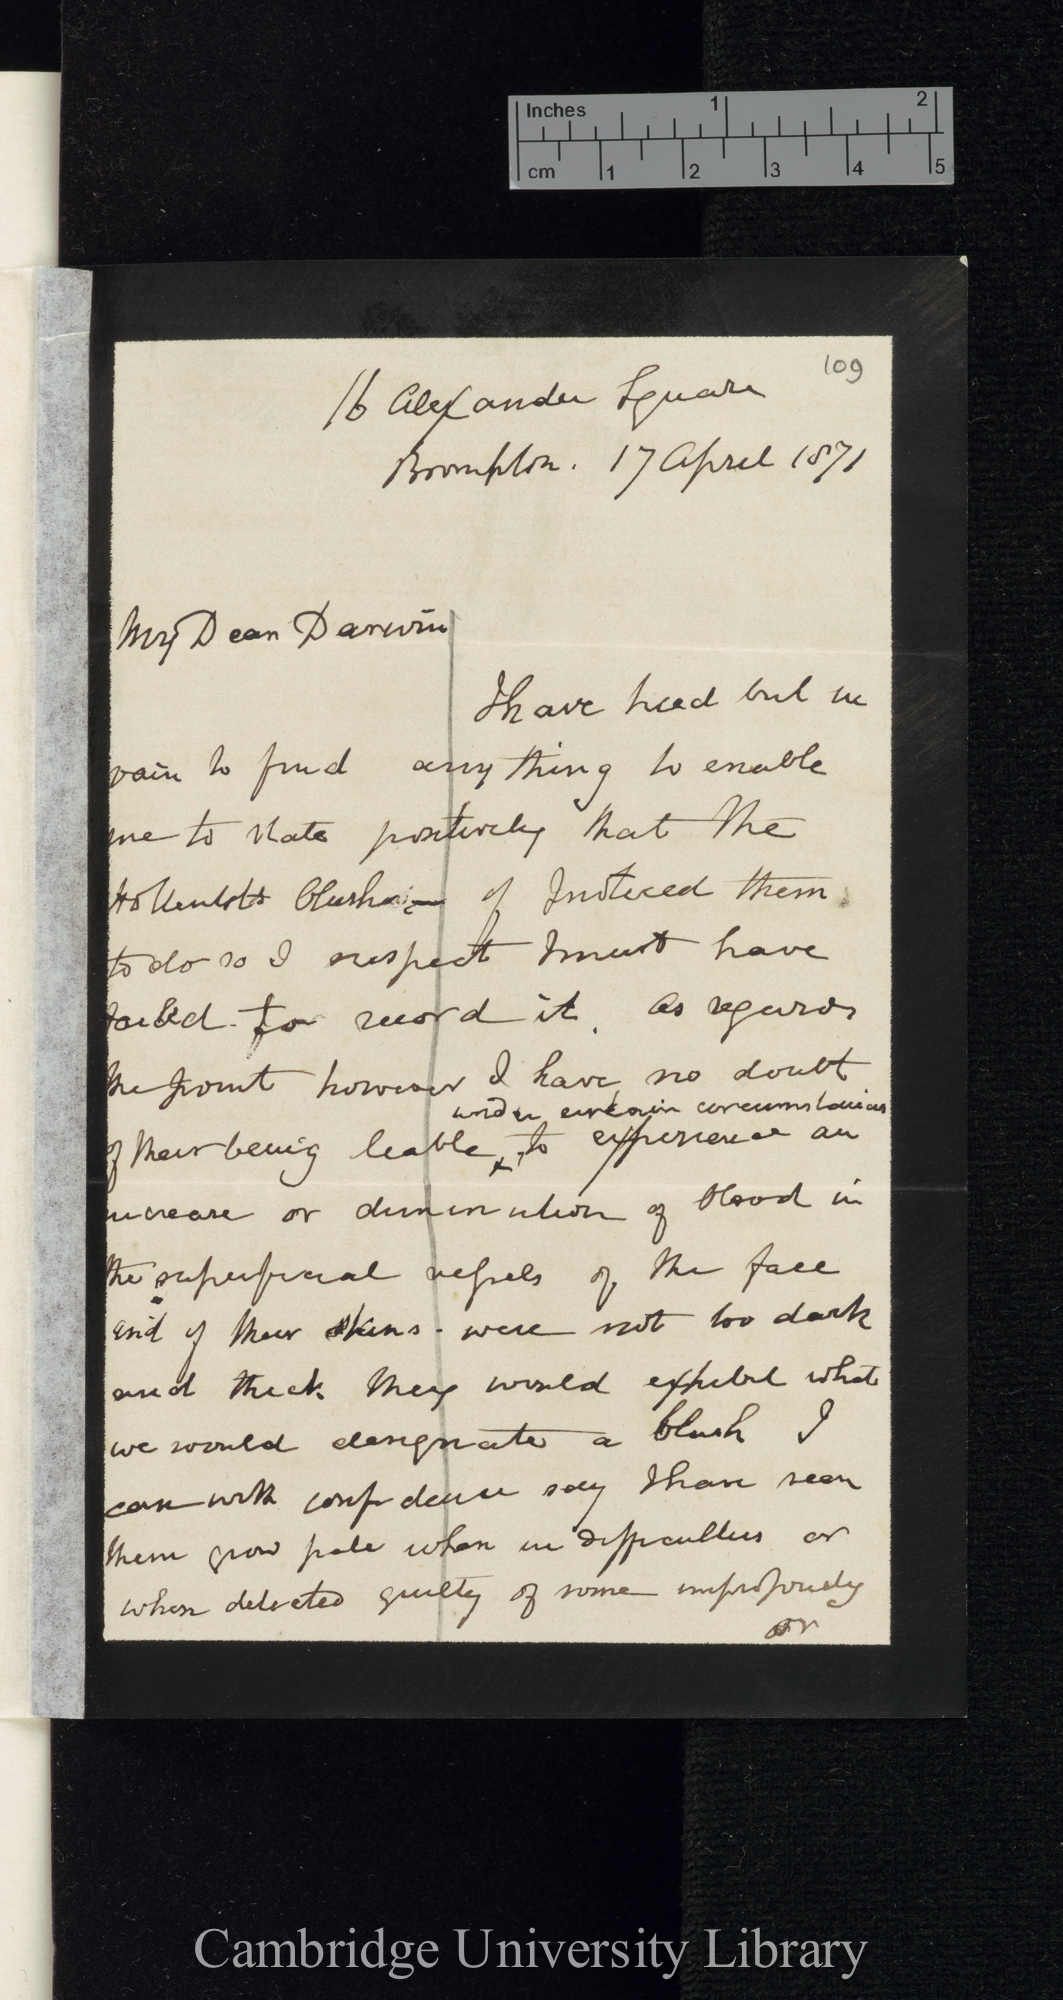 Inches 1 2
cm 1 2 3 4 5
109
16 Alexander Square
Brompton. 17 April 1871
My Dear Darwin
I have tried but in
vain to find any thing to enable
me to state positively that the
Hottentots blush if I noticed them
to do so I suspect I must have
failed to record it. As regards
the point however I have no doubt
under certain circumstances
of their being liable x to experience an
increase or diminution of blood in
the superficial vessels of the face
and if their skins were not too dark
and thick they would exhibit what
we would designate a blush I
can with confidence say I have seen
them grow pale when in difficulties or
when detected guilty of some impropriety
or
Cambridge University Library